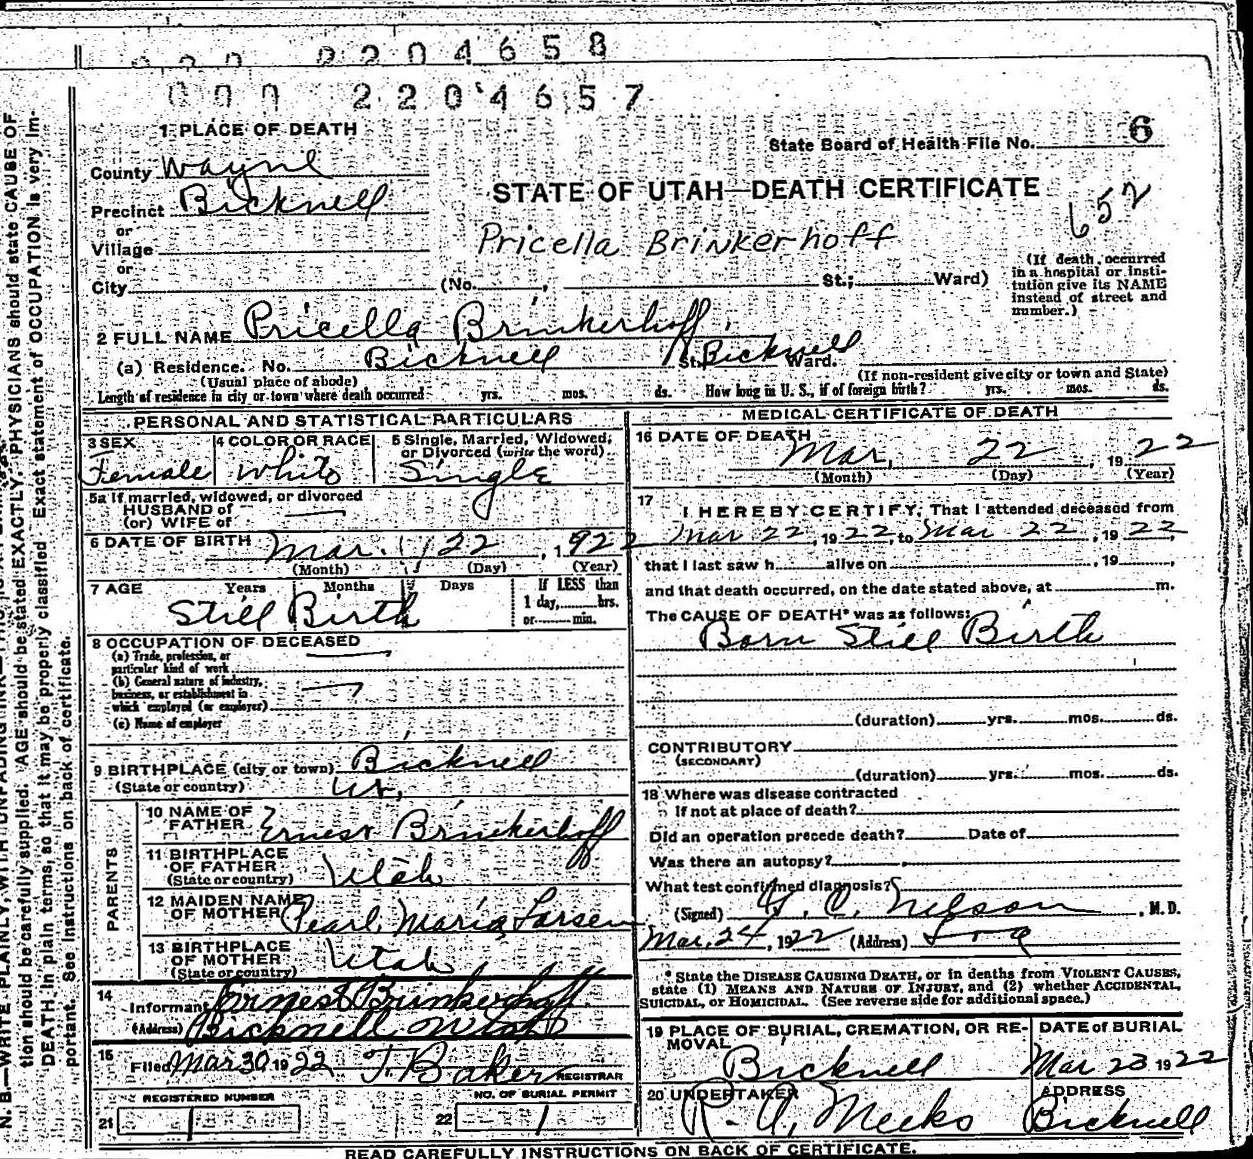 2204658
000 2204657
1 PLACE OF DEATH
State Board of Health File No. 6
County Wayne
STATE OF UTAH—DEATH CERTIFICATE
652
Precinct Bicknell
or
Village
Pricella Brinkerhoff
or
City (No. , St.; Ward)
(If death occurred in a hospital or institution give its NAME instead of street and number.)
2 FULL NAME Pricella Brinkerhoff
(a) Residence. No. Bicknell St. Bicknell Ward.
(Usual place of abode) (If non-resident give city or town and State)
Length of residence in city or town where death occurred yrs. mos. ds. How long in U. S., if of foreign birth? yrs. mos. ds.
PERSONAL AND STATISTICAL PARTICULARS
3 SEX 4 COLOR OR RACE 5 Single, Married, Widowed, or Divorced (write the word)
Female White Single
5a If married, widowed, or divorced
HUSBAND of
(or) WIFE of
6 DATE OF BIRTH Mar. 22, 1922
(Month) (Day) (Year)
7 AGE Years Months Days If LESS than
1 day, hrs.
or min.
Still Birth
8 OCCUPATION OF DECEASED
(a) Trade, profession, or
particular kind of work
(b) General nature of industry,
business, or establishment in
which employed (or employer)
(c) Name of employer
9 BIRTHPLACE (city or town) Bicknell
(State or country) Ut.
PARENTS
10 NAME OF
FATHER Ernest Brinkerhoff
11 BIRTHPLACE
OF FATHER
(State or country) Utah
12 MAIDEN NAME
OF MOTHER Pearl Maria Larsen
13 BIRTHPLACE
OF MOTHER
(State or country) Utah
14
Informant Ernest Brinkerhoff
(Address) Bicknell Utah
15
Filed Mar 30 1922 T. Baker REGISTRAR
REGISTERED NUMBER NO. OF BURIAL PERMIT
21 1 22 1
MEDICAL CERTIFICATE OF DEATH
16 DATE OF DEATH
Mar. 22, 1922
(Month) (Day) (Year)
17
I HEREBY CERTIFY, That I attended deceased from
Mar 22, 1922, to Mar 22, 1922,
that I last saw h alive on , 19 ,
and that death occurred, on the date stated above, at m.
The CAUSE OF DEATH* was as follows:
Born Still Birth
(duration) yrs. mos. ds.
CONTRIBUTORY
(SECONDARY)
(duration) yrs. mos. ds.
18 Where was disease contracted
if not at place of death?
Did an operation precede death? Date of
Was there an autopsy?
What test confirmed diagnosis?
(Signed) Nelson, M.D.
Mar. 24, 1922 (Address) Loa
* State the DISEASE CAUSING DEATH, or in deaths from VIOLENT CAUSES,
state (1) MEANS AND NATURE OF INJURY, and (2) whether ACCIDENTAL,
SUICIDAL, or HOMICIDAL. (See reverse side for additional space.)
19 PLACE OF BURIAL, CREMATION, OR RE-
MOVAL DATE of BURIAL
Bicknell Mar 23 1922
20 UNDERTAKER ADDRESS
R. A. Meeks Bicknell
READ CAREFULLY INSTRUCTIONS ON BACK OF CERTIFICATE.
N. B.—WRITE PLAINLY, WITH UNFADING INK
tion should be carefully supplied. AGE should be stated EXACTLY. PHYSICIANS should state CAUSE OF
DEATH in plain terms, so that it may be properly classified. Exact statement of OCCUPATION is very im-
portant. See instructions on back of certificate.